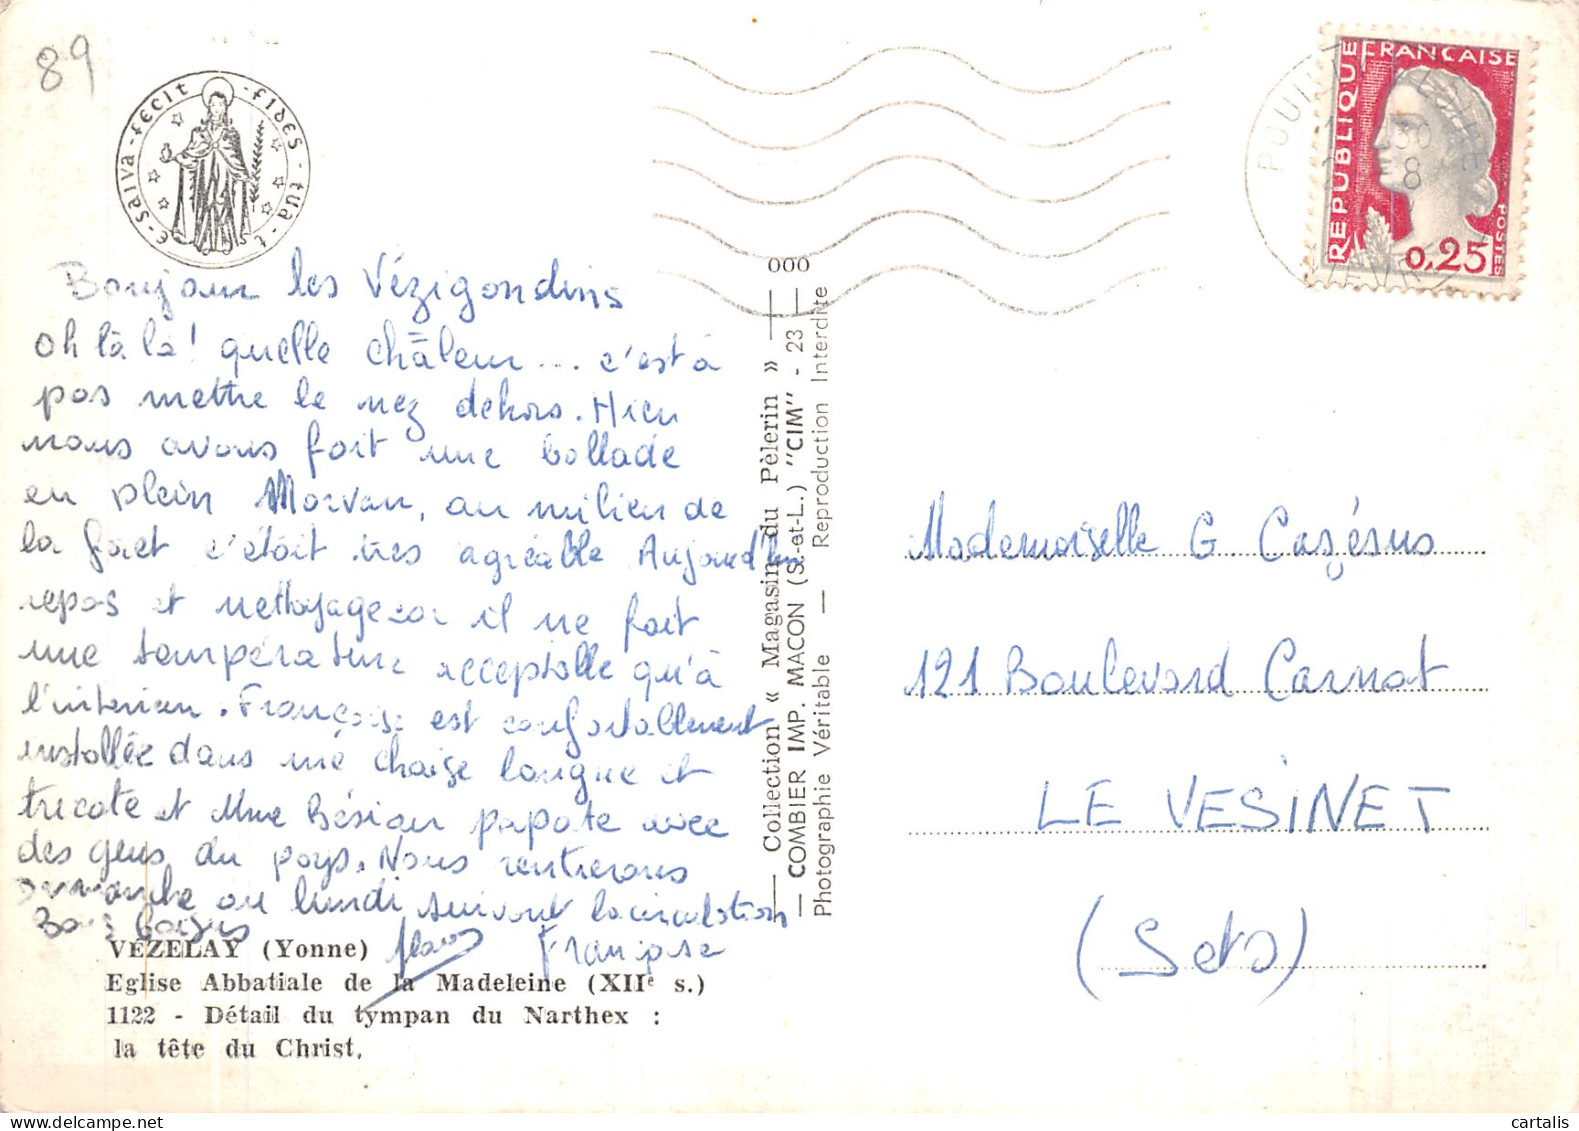 89
e-salva-fecit-fides-tua-t
Bonjour les Vézigondins
oh là là! quelle châleur... c'est à
pas mettre le nez dehors. Hier
nous avons fait une ballade
en plein Morvan, au milieu de
la foret c'était très agréable Aujourd'hui
repos et nettoyage car il ne fait
une température acceptable qu'à
l'interieur. Françoise est confortablement
installée dans une chaise longue et
tricote et Mme Bésiau papote avec
des gens du pays. Nous rentrerons
dimanche ou lundi suivant la circulation
Bons baisers
Françoise
VÉZELAY (Yonne)
Eglise Abbatiale de la Madeleine (XIIe s.)
1122 - Détail du tympan du Narthex :
la tête du Christ.
000
— Collection « Magasin du Pèlerin » —
— COMBIER IMP. MACON (S.-et-L.) "CIM" - 23 —
Photographie Véritable — Reproduction Interdite
REPUBLIQUE FRANCAISE
POSTES
0,25
Mademoiselle G Cazésus
121 Boulevard Carnot
LE VESINET
(S et O)
cartalis
delcampe.net